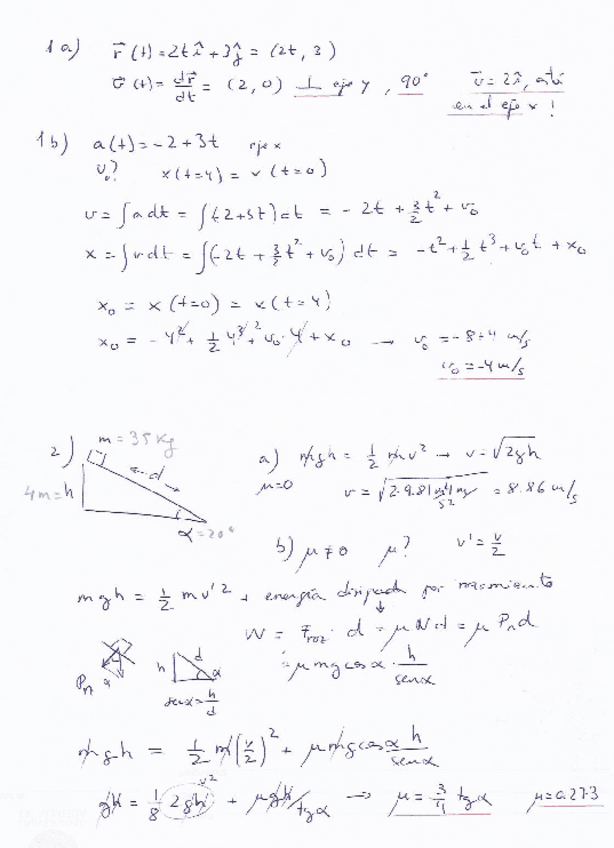 1a) r⃗(t) = 2t î + 3 ĵ = (2t, 3)
v⃗(t) = dr⃗/dt = (2, 0) ⊥ eje y, 90°
v⃗ = 2î, está
en el eje x!
1b) a(t) = -2 + 3t eje x
v₀? x(t=4) = x(t=0)
v = ∫a dt = ∫(-2+3t)dt = -2t + 3/2 t² + v₀
x = ∫v dt = ∫(-2t + 3/2 t² + v₀) dt = -t² + 1/2 t³ + v₀t + x₀
x₀ = x(t=0) = x(t=4)
x₀ = -4² + 1/2 4³ + v₀·4 + x₀ → v₀ = -8+4 m/s
v₀ = -4 m/s
2) m = 35 Kg
d
4m = h
α = 20°
a) mgh = 1/2 mv² → v = √2gh
μ=0 v = √2·9.81 m/s² 4m = 8.86 m/s
b) μ ≠ 0 μ? v' = v/2
mgh = 1/2 mv'² + energía disipada por rozamiento
W = F roz · d = μNd = μ Pn d
= μmg cos α · h/sen α
Pn α
h d α
sen α = h/d
mgh = 1/2 m(v/2)² + μmg cos α h/sen α
v²
gh = 1/8 2gh + μgh/tg α → μ = 3/4 tg α μ = 0.273